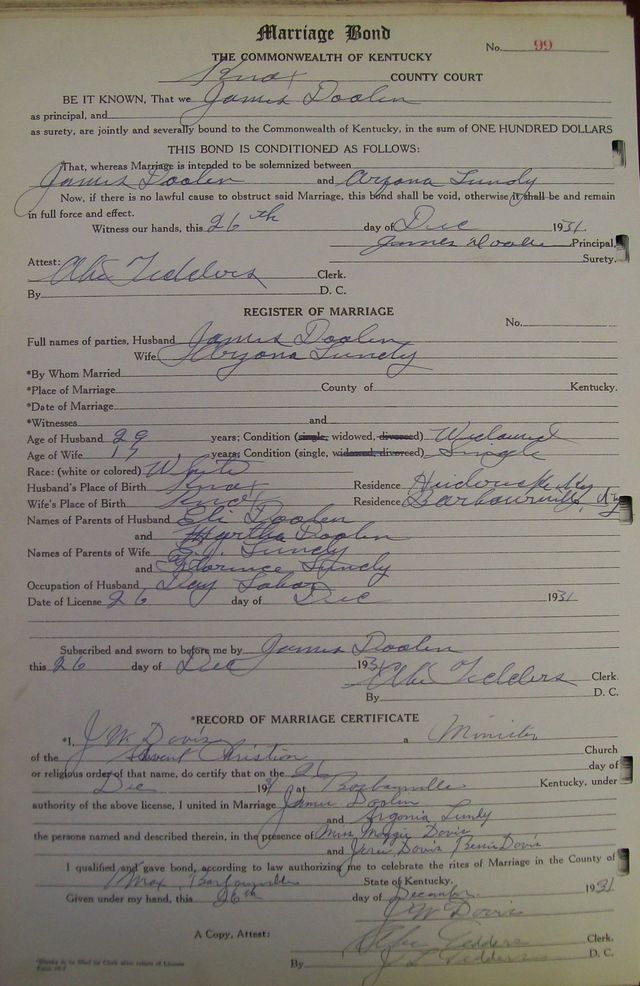 Marriage Bond
No. 99
THE COMMONWEALTH OF KENTUCKY
Knox COUNTY COURT
BE IT KNOWN, That we James Doolen
as principal, and
as surety, are jointly and severally bound to the Commonwealth of Kentucky, in the sum of ONE HUNDRED DOLLARS
THIS BOND IS CONDITIONED AS FOLLOWS:
That, whereas Marriage is intended to be solemnized between
James Doolen and Aryona Lundy
Now, if there is no lawful cause to obstruct said Marriage, this bond shall be void, otherwise it shall be and remain
in full force and effect.
Witness our hands, this 26th day of Dec 1931.
James Doolen Principal,
Surety.
Attest:
Abe Tedders Clerk.
By D. C.
REGISTER OF MARRIAGE
No.
Full names of parties, Husband James Doolen
Wife Aryona Lundy
*By Whom Married
*Place of Marriage County of Kentucky.
*Date of Marriage
*Witnesses and
Age of Husband 29 years; Condition (single, widowed, divorced) Widowed
Age of Wife 17 years; Condition (single, widowed, divorced) Single
Race: (white or colored) White
Husband's Place of Birth Knox Residence Ky
Wife's Place of Birth Knox Residence Barbourville, Ky
Names of Parents of Husband Eli Doolen
and Myrtha Doolen
Names of Parents of Wife E.J. Lundy
and Florence Lundy
Occupation of Husband Day Labor
Date of License 26 day of Dec 1931
Subscribed and sworn to before me by James Doolen
this 26 day of Dec 1931
Abe Tedders Clerk.
By D. C.
*RECORD OF MARRIAGE CERTIFICATE
*I, J W Davis a Minister
of the Advent Christian Church
or religious order of that name, do certify that on the 26 day of
Dec 1931 at Barbourville Kentucky, under
authority of the above license, I united in Marriage James Doolen
and Argonia Lundy
the persons named and described therein, in the presence of Miss Maggie Davis
and Davis Davis
I qualified and gave bond, according to law authorizing me to celebrate the rites of Marriage in the County of
Knox Barbourville State of Kentucky.
Given under my hand, this 26th day of December 1931
J W Davis
A Copy, Attest: Abe Tedders Clerk.
By J L Tedders D. C.